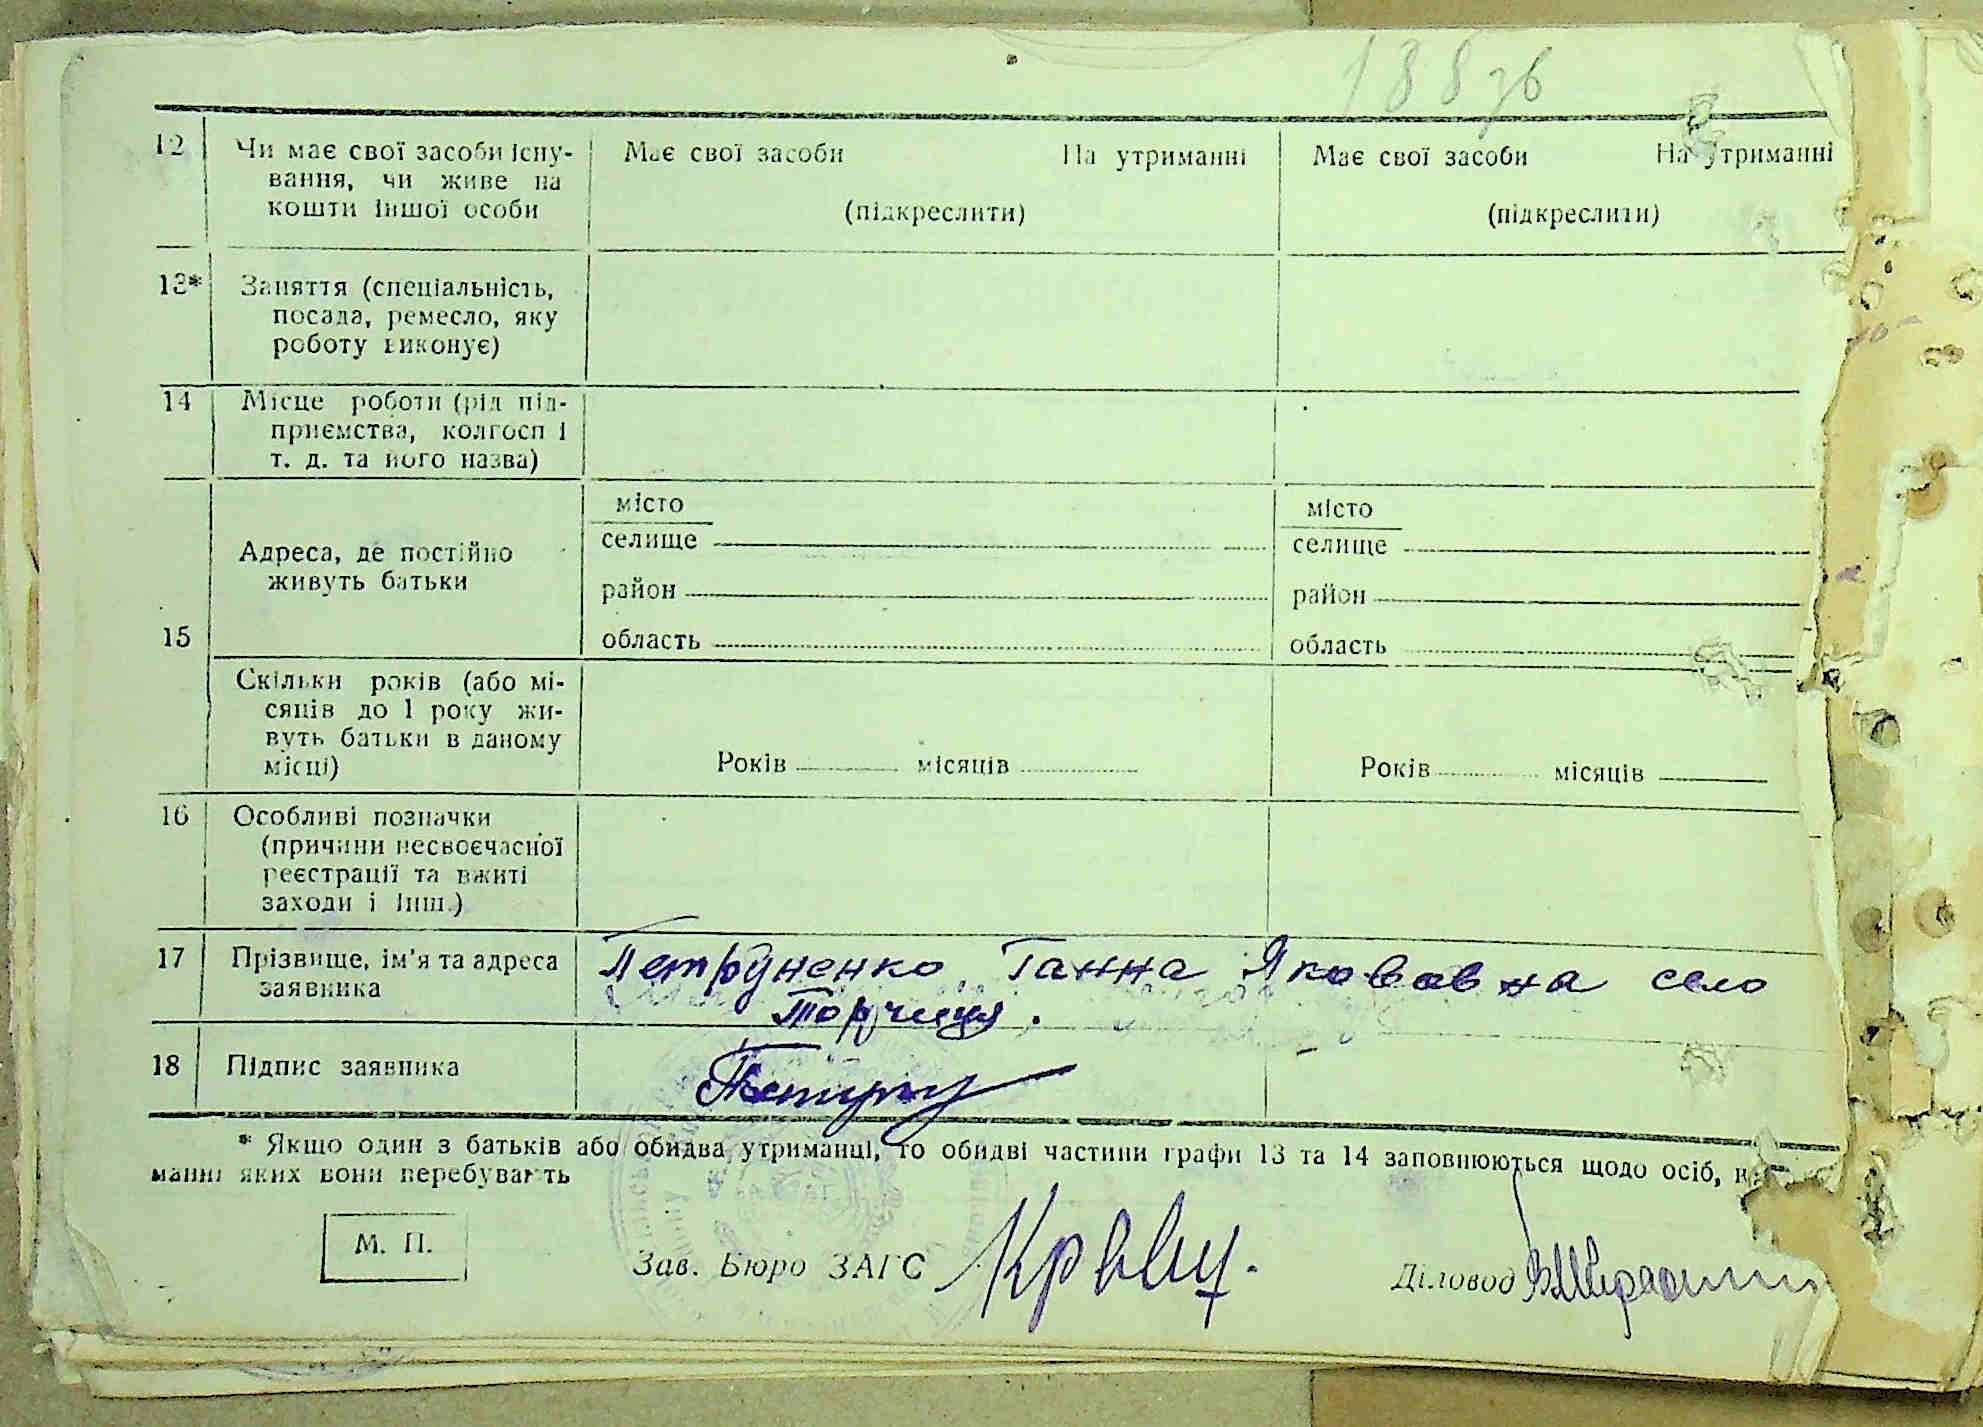 188 зв
12 Чи має свої засоби існу-
вання, чи живе на
кошти іншої особи
Має свої засоби На утриманні
(підкреслити)
Має свої засоби На утриманні
(підкреслити)
13* Заняття (спеціальність,
посада, ремесло, яку
роботу виконує)
14 Місце роботи (рід під-
приємства, колгосп і
т. д. та його назва)
15 Адреса, де постійно
живуть батьки
місто
селище
район
область
місто
селище
район
область
Скільки років (або мі-
сяців до 1 року жи-
вуть батьки в даному
місці)
Років місяців
Років місяців
16 Особливі позначки
(причини несвоєчасної
реєстрації та вжиті
заходи і інш.)
17 Прізвище, ім'я та адреса
заявника
Петруненко Ганна Яковавна село
Торчиця.
18 Підпис заявника
Петрун
* Якщо один з батьків або обидва утриманці, то обидві частини графи 13 та 14 заповнюються щодо осіб, на
манні яких вони перебувають
М. П.
Зав. Бюро ЗАГС Кравц.
Діловод